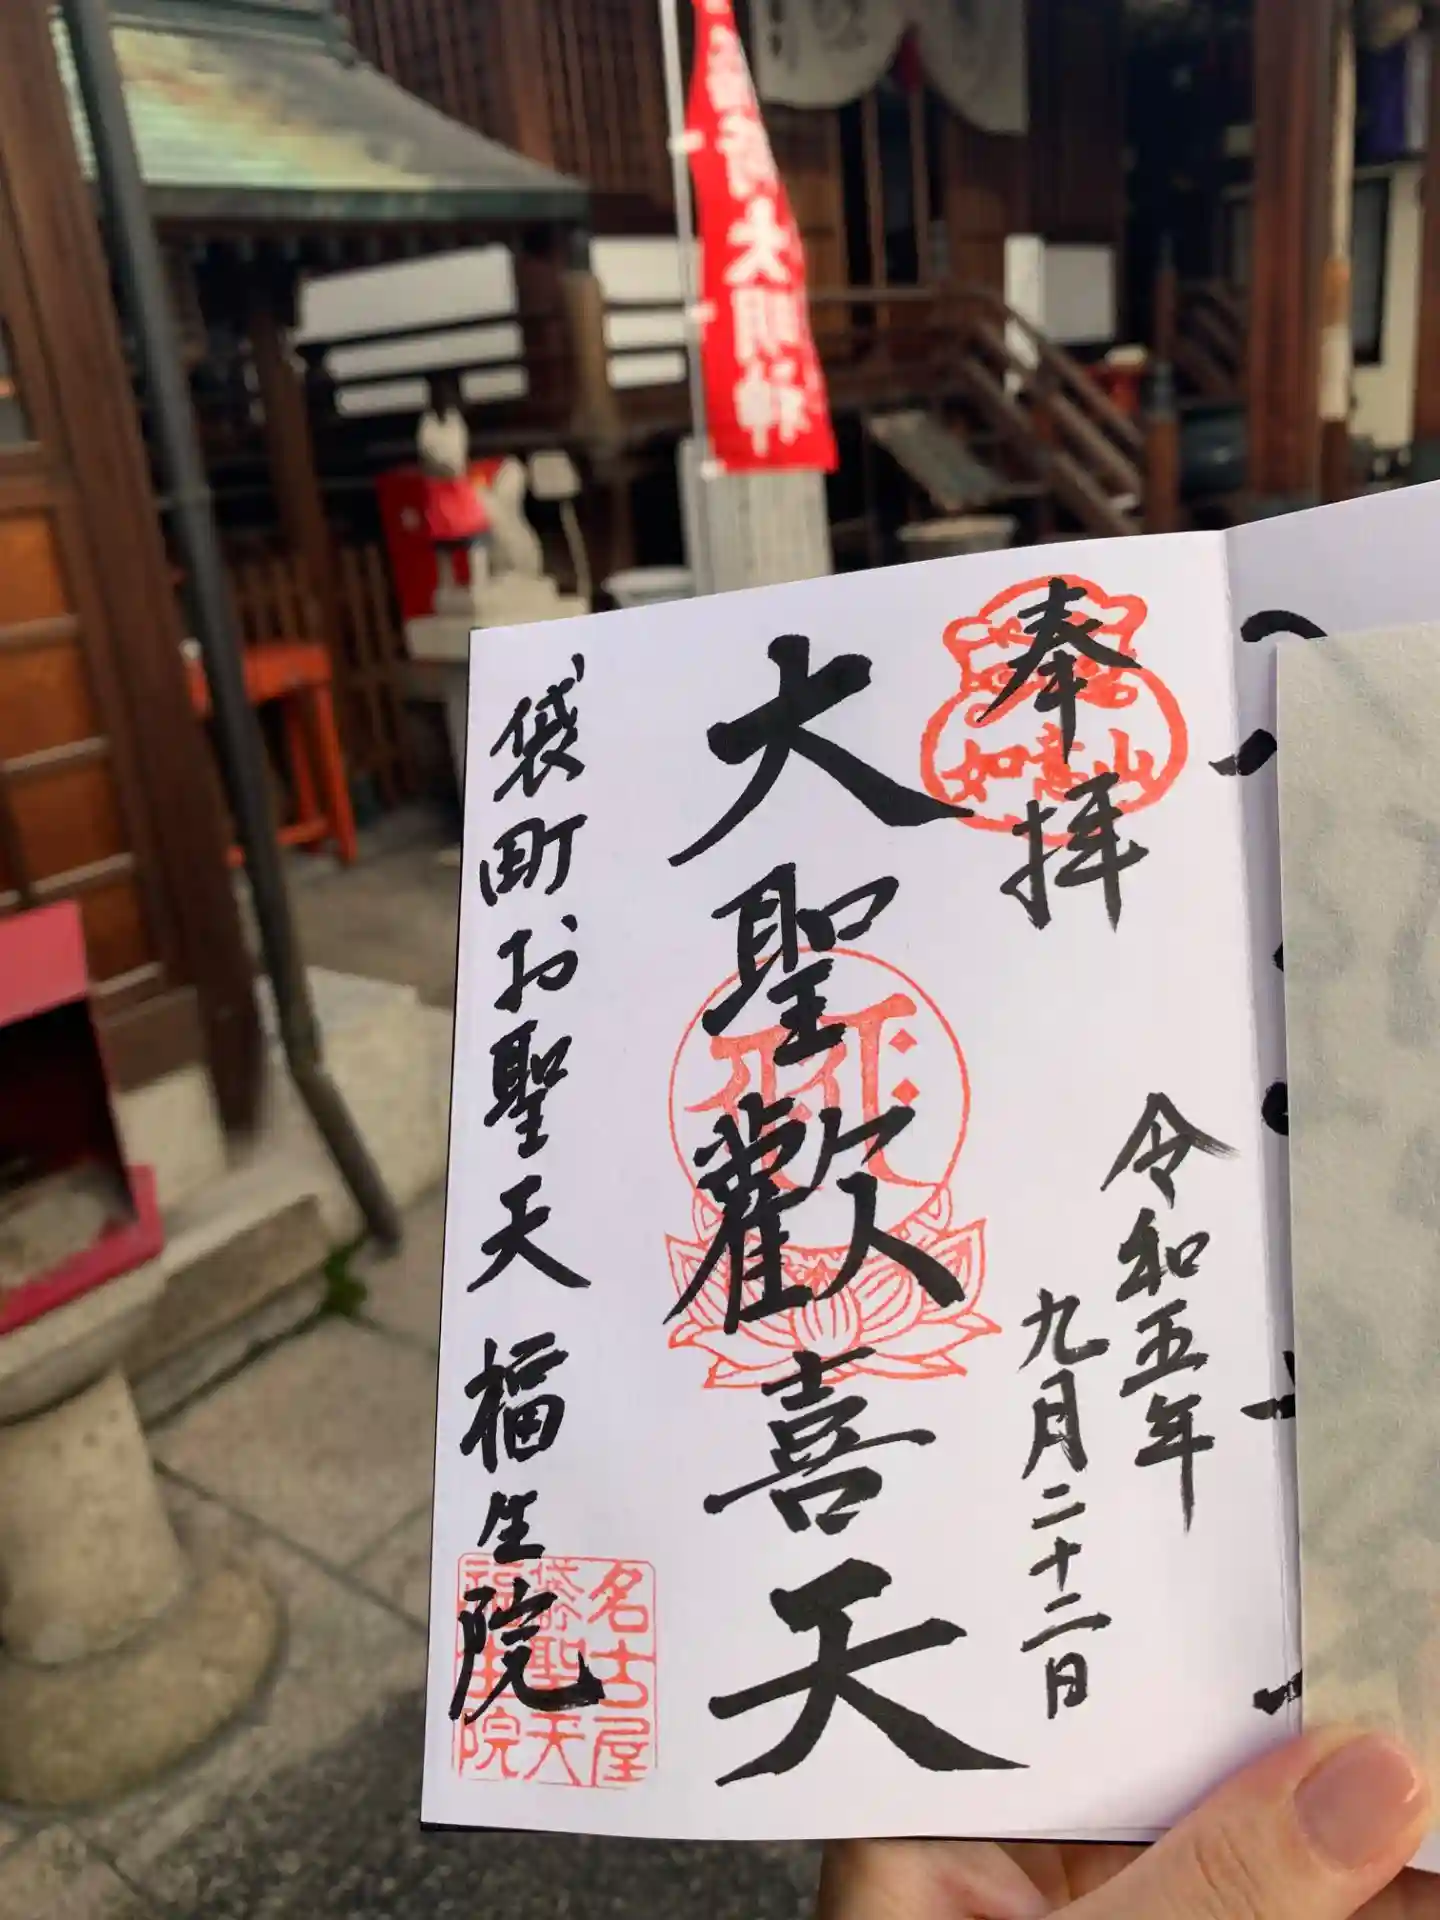 大聖歓喜天
奉拝
如意山
令和五年
九月二十二日
大聖歡喜天
袋町お聖天 福生院
名古屋
袋聖天
福生院